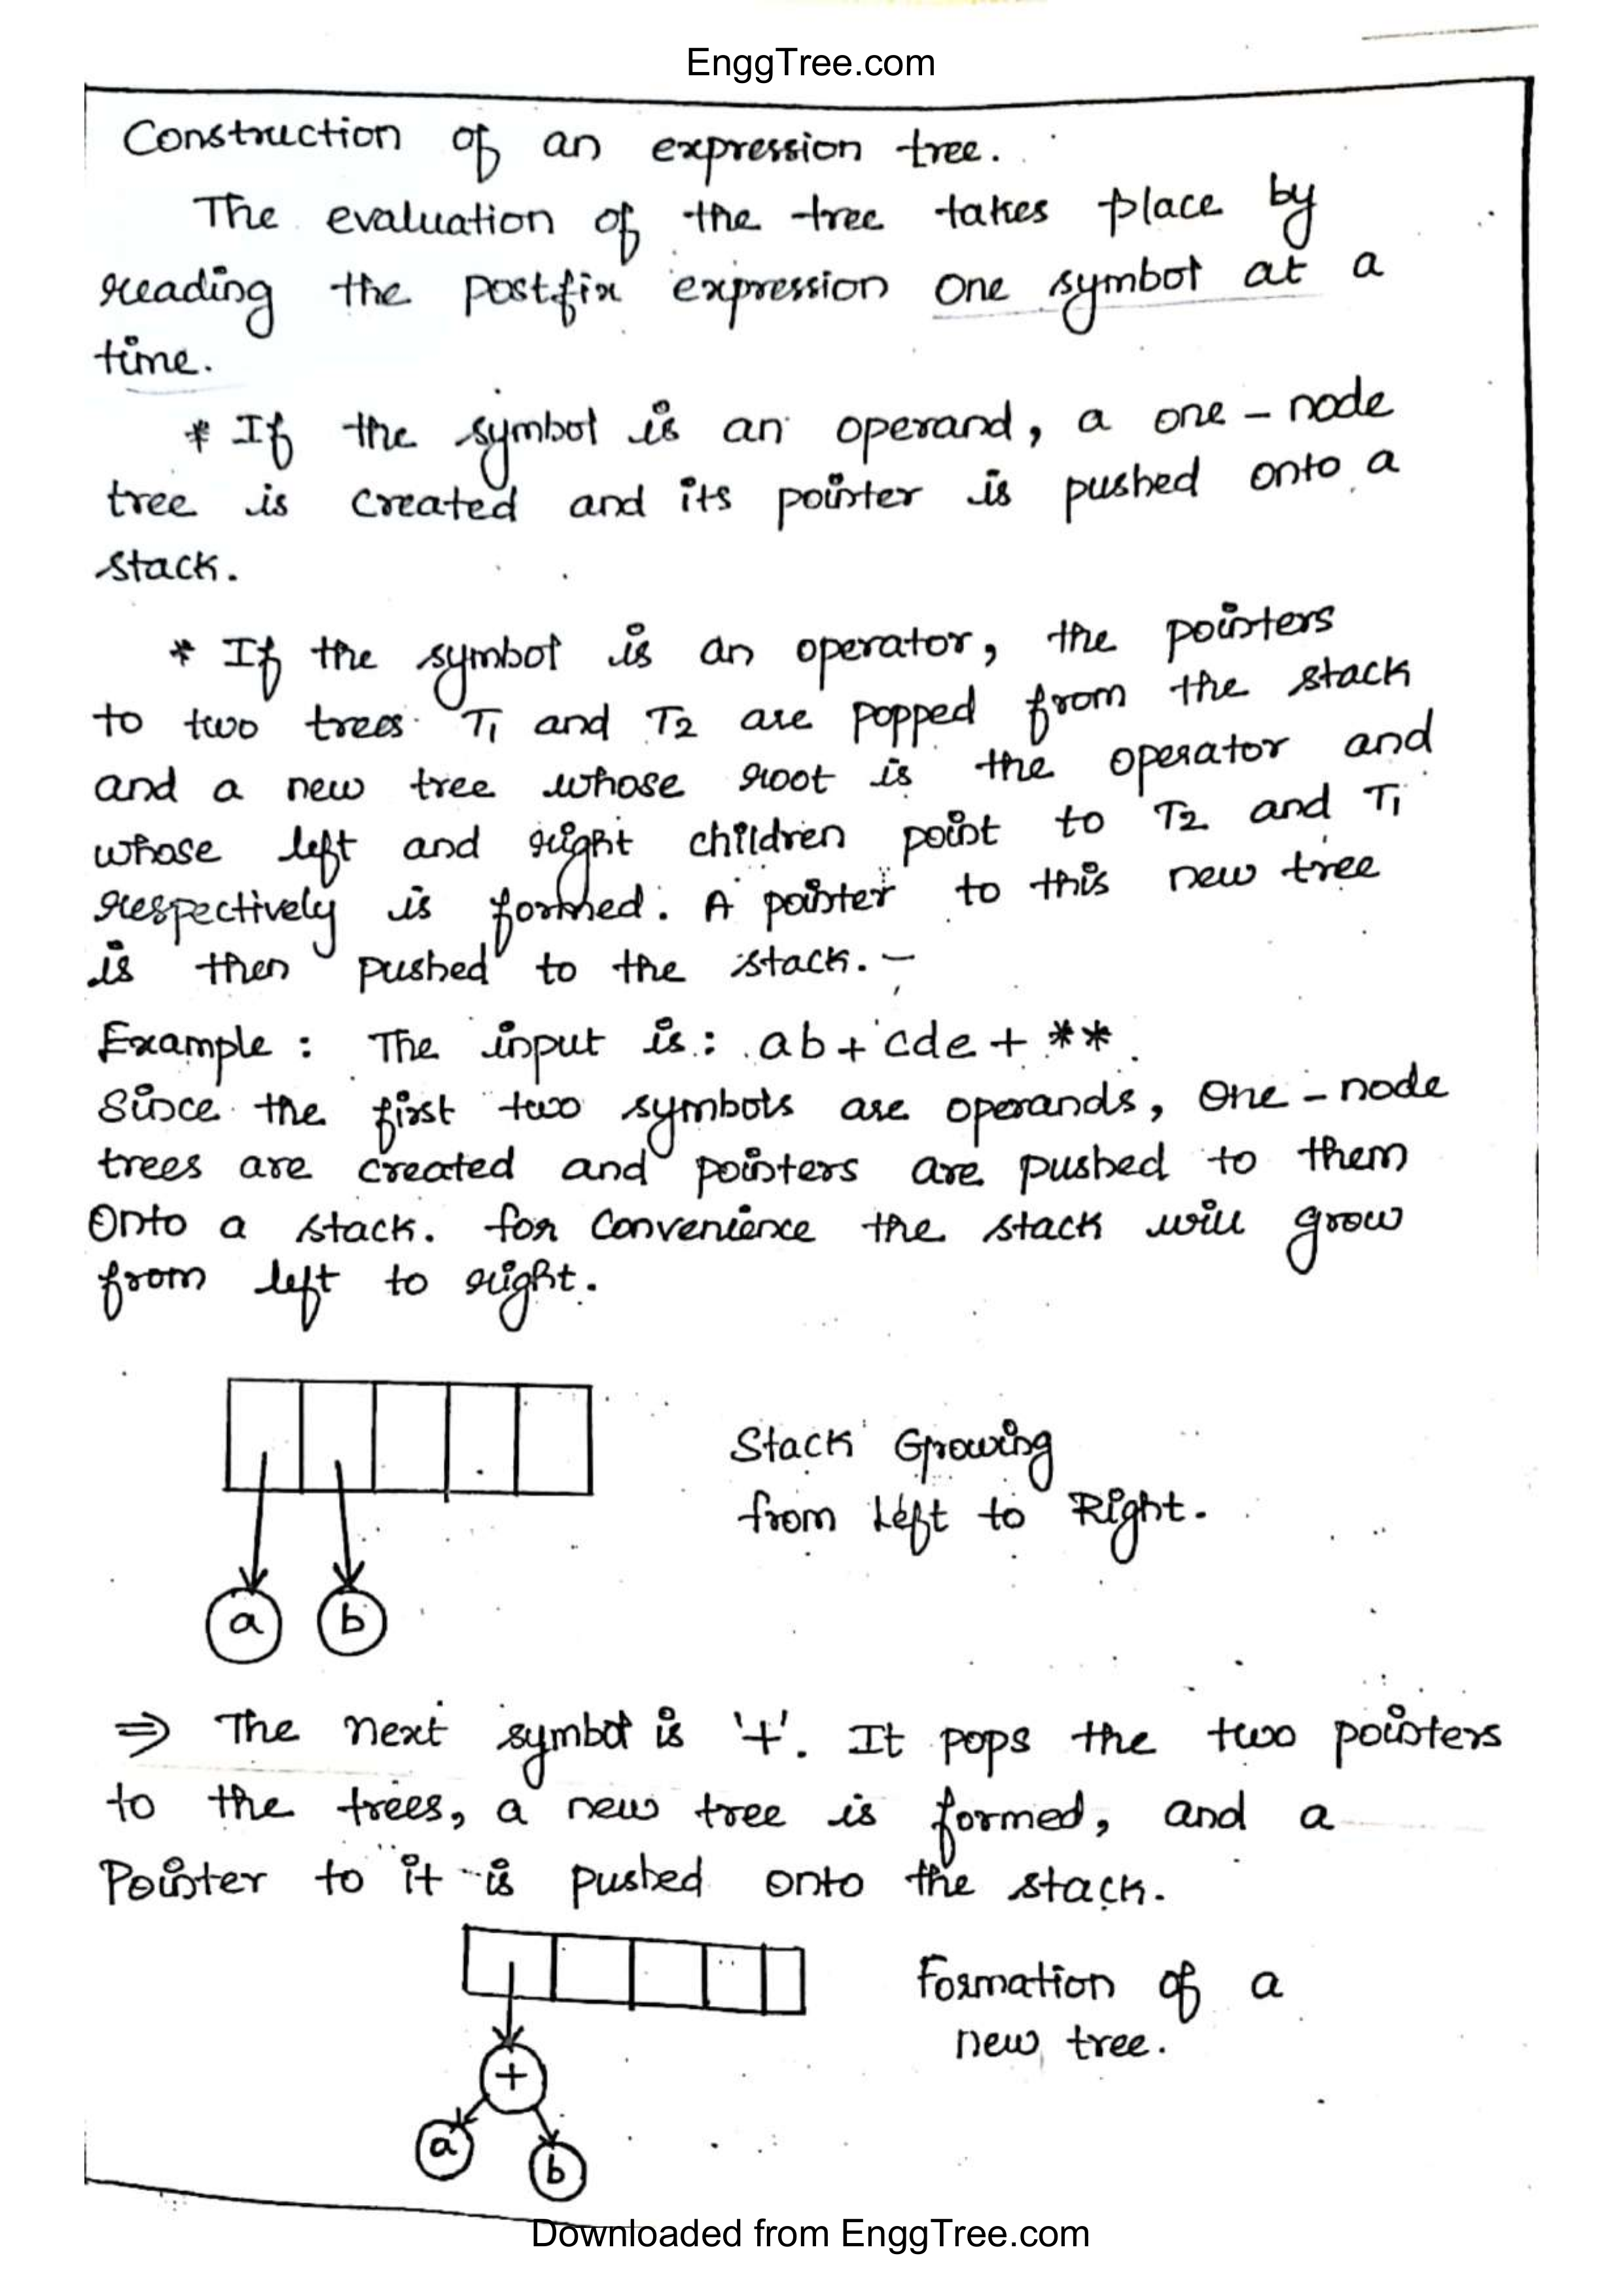 EnggTree.com
Construction of an expression tree.
The evaluation of the tree takes place by
reading the postfix expression one symbol at a
time.
* If the symbol is an operand, a one - node
tree is created and its pointer is pushed onto a
stack.
* If the symbol is an operator, the pointers
to two trees T1 and T2 are popped from the stack
and a new tree whose root is the operator and
whose left and right children point to T2 and T1
respectively is formed. A pointer to this new tree
is then pushed to the stack. -
Example : The input is : ab+cde+**.
Since the first two symbols are operands, one - node
trees are created and pointers are pushed to them
Onto a stack. for convenience the stack will grow
from left to right.
Stack Growing
from Left to Right.
a b
⇒ The next symbol is '+'. It pops the two pointers
to the trees, a new tree is formed, and a
Pointer to it is pushed onto the stack.
Formation of a
new tree.
+
a
b
Downloaded from EnggTree.com